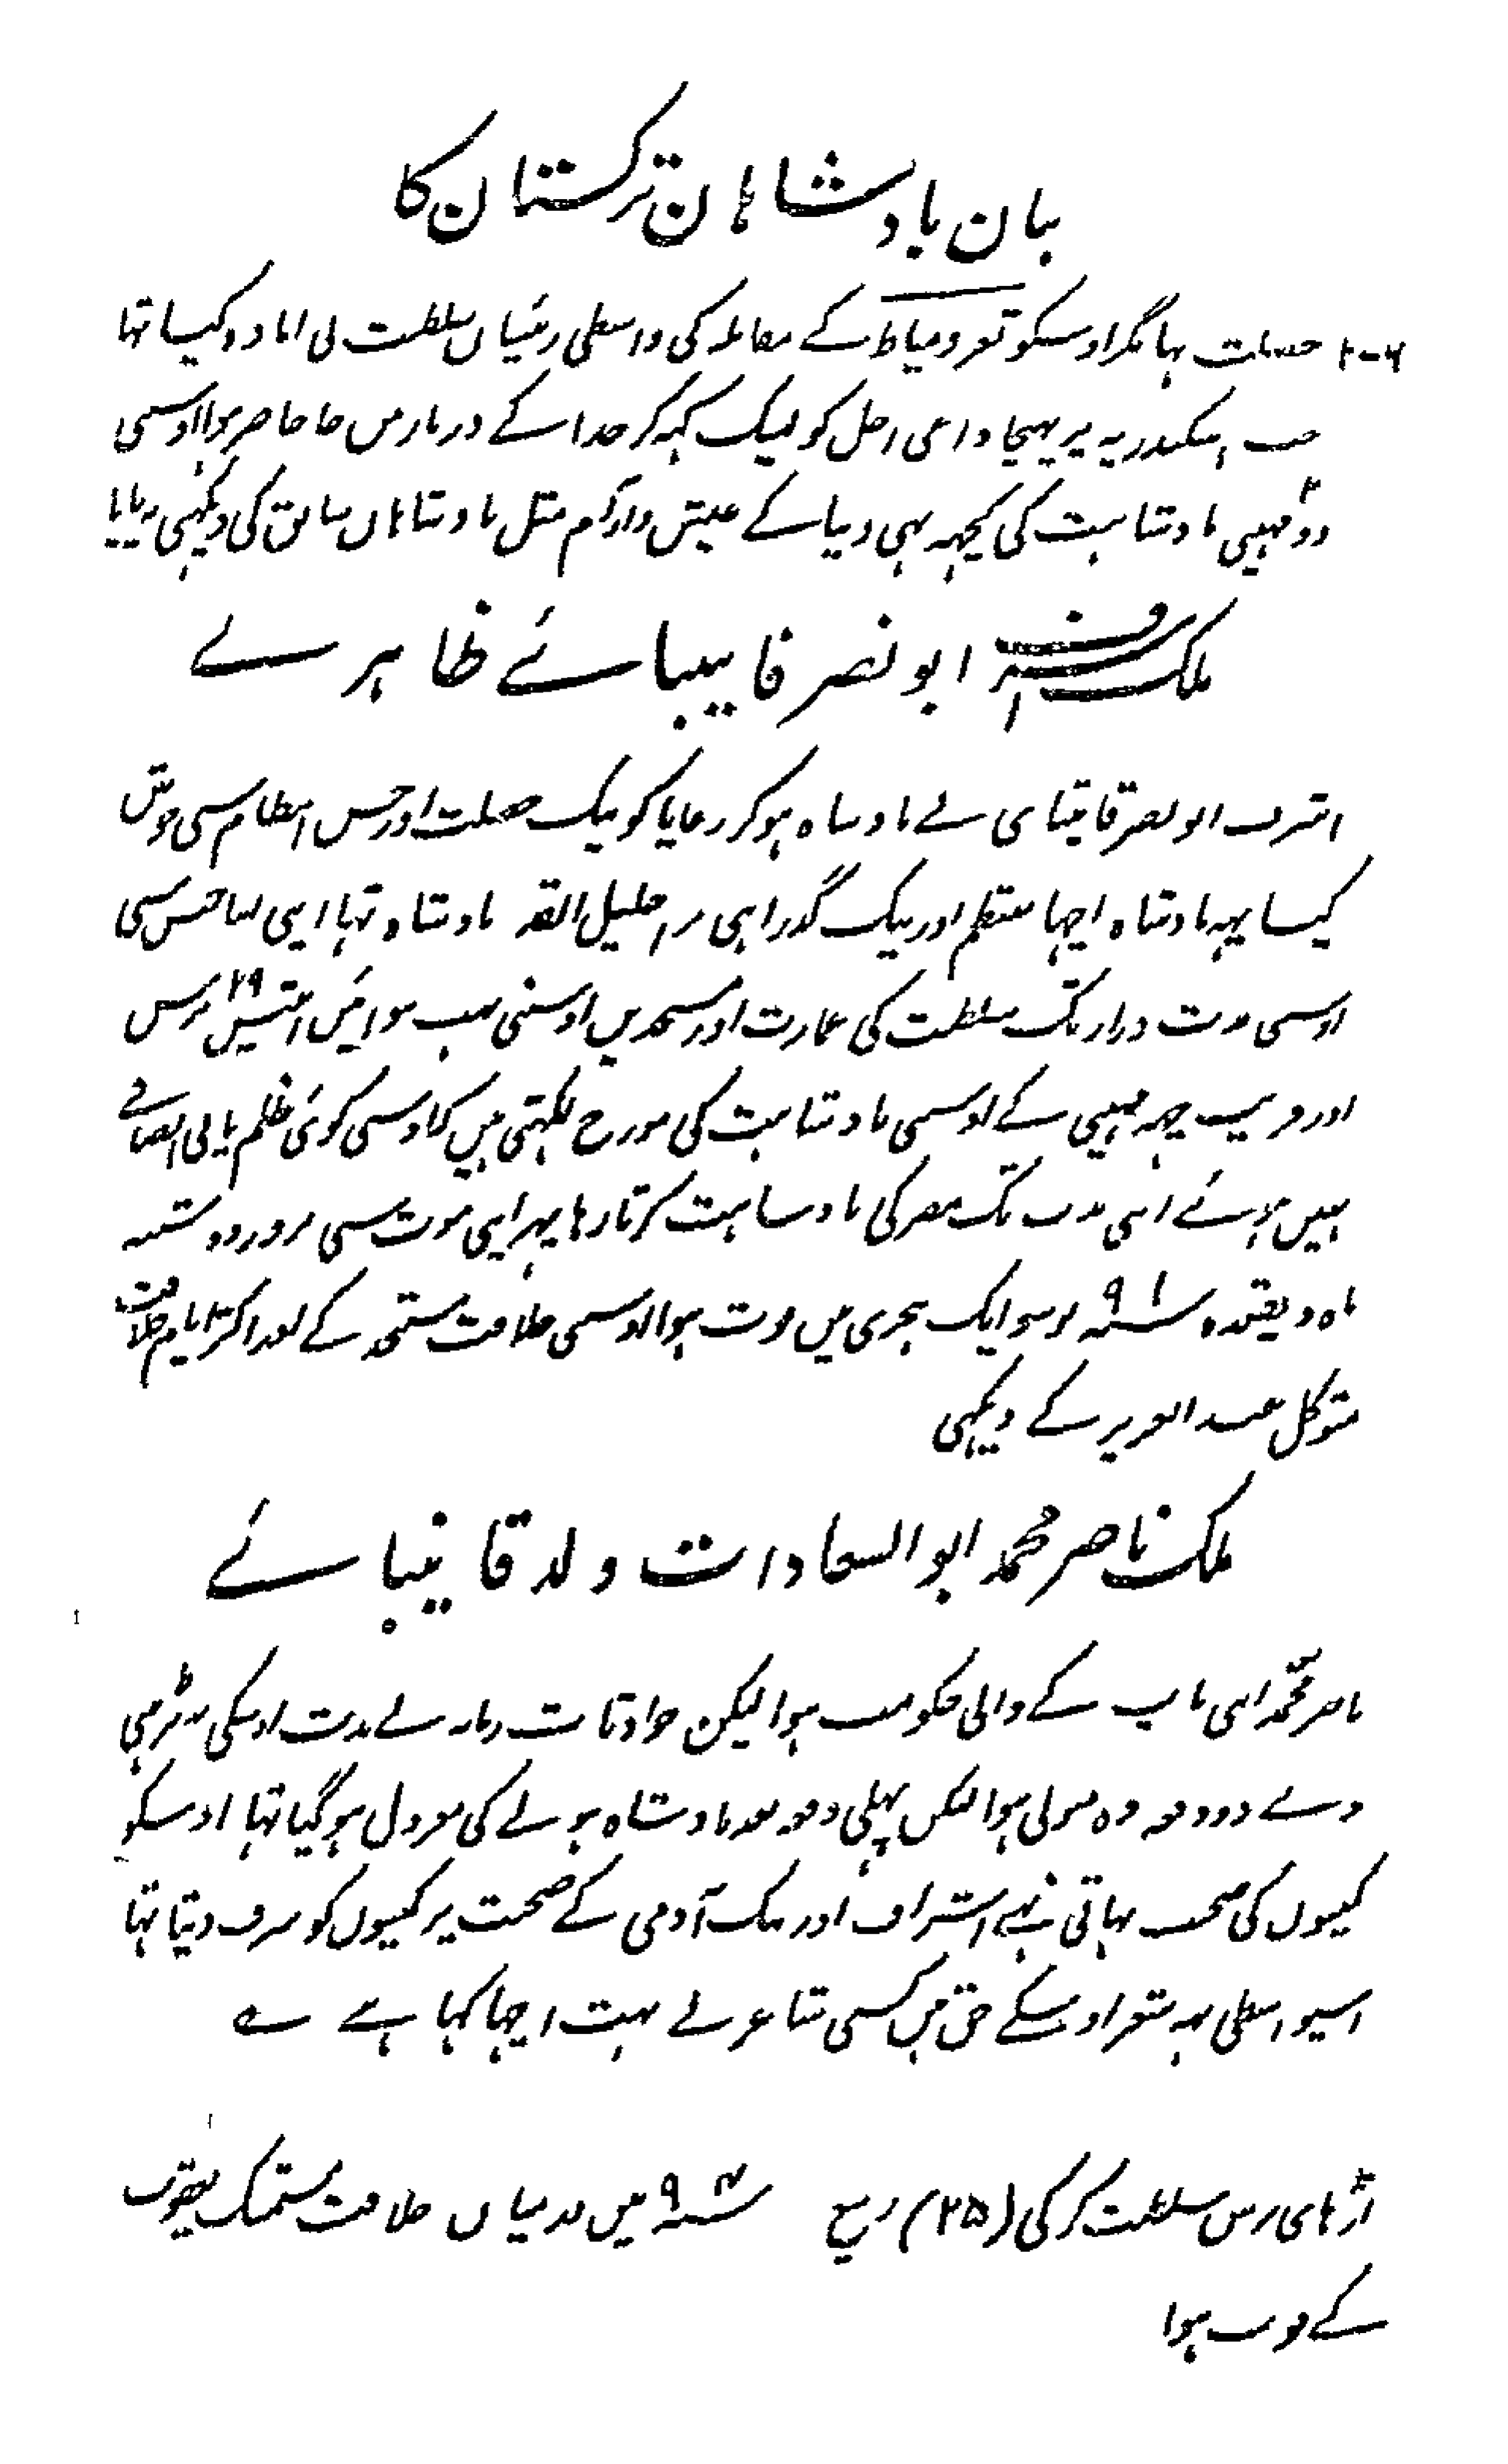 بیان بادشاہان ترکستان کا
خصلت تہا مگر اوسکو ثغر دمیاط کے معاملہ کی واسطی رئیسان سلطنت نی امادہ کیا تہا
جب اسکندریہ پر پہنچا داعی اجل کو لبیک کہہ کر خدا کے دربار میں جا حاضر ہوا اوسنی
دو ۲ مہینی بادشاہت کی کچہہ بہی دنیا کے عیش و آرام مثل بادشاہان سابق کی دیکہنی نہ پایا
ملک اشرف ابو نصر قایتبائے ظاہرے
اشرف ابو نصر قایتبای نے بادشاہ ہوکر رعایا کو نیک خصلت اور حسن انتظام سی خوش
کیا یہہ بادشاہ اچہا منتظم اور نیک گذرا ہی بڑا جلیل القدر بادشاہ تہا ایسی
اوسی مدت دراز تک سلطنت کی عمارت اور مسجدیں اوسنی سب بنوائیں انتیس ۲۹ برس
اور قریب چہہ مہینی کے اوسنی بادشاہت کی مورخ لکہتی ہیں کہ اوسی کوئی ظلم یا بی انصافے
نہیں ہوئے اسی مدت تک مصر کی بادشاہت کرتا رہا پہر اپنی موت سی بروز دو شنبہ
ماہ ذیقعدہ سنہ ۹۰۱ نو سو ایک ہجری میں فوت ہوا اوسنی خلافت مستنجد کے بعد اکثر ایام خلافت
متوکل عبد العزیز کے دیکہی
ملک ناصر محمد ابو السعادات ولد قایتبائے
ناصر محمد اپنی باپ کے والی حکومت ہوا لیکن حوادثات زمانہ نے مدت اوسکی نہ بڑہنی
دے دو دفعہ وہ متولی ہوا لیکن پہلی دفعہ بعد بادشاہ ہونے کی معزول ہو گیا تہا اوسکو
کمینوں کی صحبت بہاتی تہے اشراف اور نیک آدمی کے صحبت پر کمینوں کو شرف دیتا تہا
اسیواسطی یہہ شعر اوسکے حق میں کسی شاعر نے بہت اچہا کہا ہے
اڑہای برس سلطنت کر کی (۲۵) ربیع سنہ ۹۰۴ میں درمیان خلافت مستمسک یعقوب
کے فوت ہوا